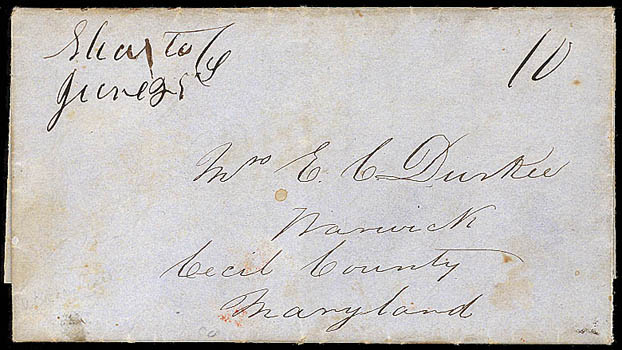 June 25
10
Mrs E. C. Durkee
Warwick
Cecil County
Maryland